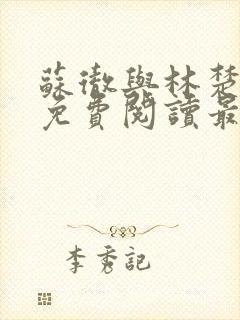 蘇徹與林楚
免費閱讀最
李秀記